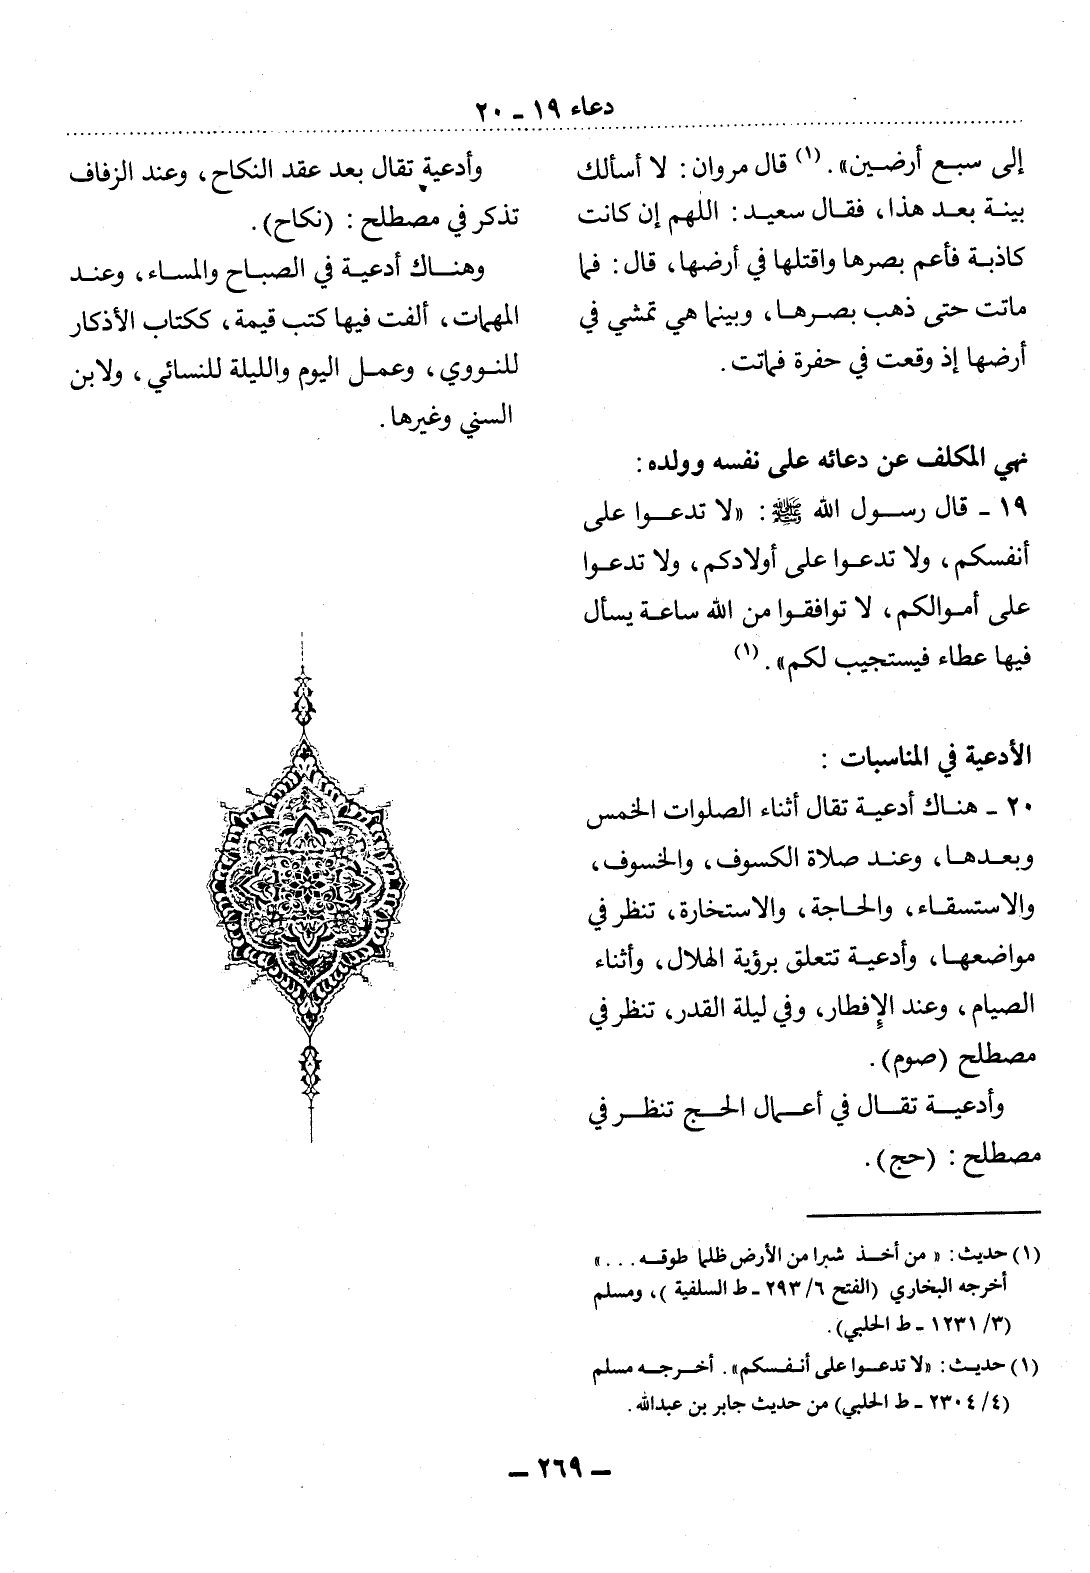 دعاء ١٩ ـ ٢٠
إلى سبع أرضين». (١) قال مروان: لا أسألك
بينة بعد هذا، فقال سعيد: اللهم إن كانت
كاذبة فأعم بصرها واقتلها في أرضها، قال: فما
ماتت حتى ذهب بصرها، وبينما هي تمشي في
أرضها إذ وقعت في حفرة فماتت.
نهي المكلف عن دعائه على نفسه وولده:
١٩ ـ قال رسول الله ﷺ: «لا تدعوا على
أنفسكم، ولا تدعوا على أولادكم، ولا تدعوا
على أموالكم، لا توافقوا من الله ساعة يسأل
فيها عطاء فيستجيب لكم». (١)
الأدعية في المناسبات :
٢٠ ـ هناك أدعية تقال أثناء الصلوات الخمس
وبعدها، وعند صلاة الكسوف، والخسوف،
والاستسقاء، والحاجة، والاستخارة، تنظر في
مواضعها، وأدعية تتعلق برؤية الهلال، وأثناء
الصيام، وعند الإفطار، وفي ليلة القدر، تنظر في
مصطلح (صوم).
وأدعية تقال في أعمال الحج تنظر في
مصطلح : (حج).
(١) حديث: « من أخذ شبرا من الأرض ظلما طوقه ...»
أخرجه البخاري (الفتح ٦/ ٢٩٣ ـ ط السلفية )، ومسلم
(٣/ ١٢٣١ ـ ط الحلبي).
(١) حديث: «لا تدعوا على أنفسكم». أخرجه مسلم
(٤/ ٢٣٠٤ ـ ط الحلبي) من حديث جابر بن عبدالله.
وأدعية تقال بعد عقد النكاح، وعند الزفاف
تذكر في مصطلح : (نكاح).
وهناك أدعية في الصباح والمساء، وعند
المهمات، ألفت فيها كتب قيمة، ككتاب الأذكار
للنووي، وعمل اليوم والليلة للنسائي، ولابن
السني وغيرها.
ـ ٢٦٩ ـ